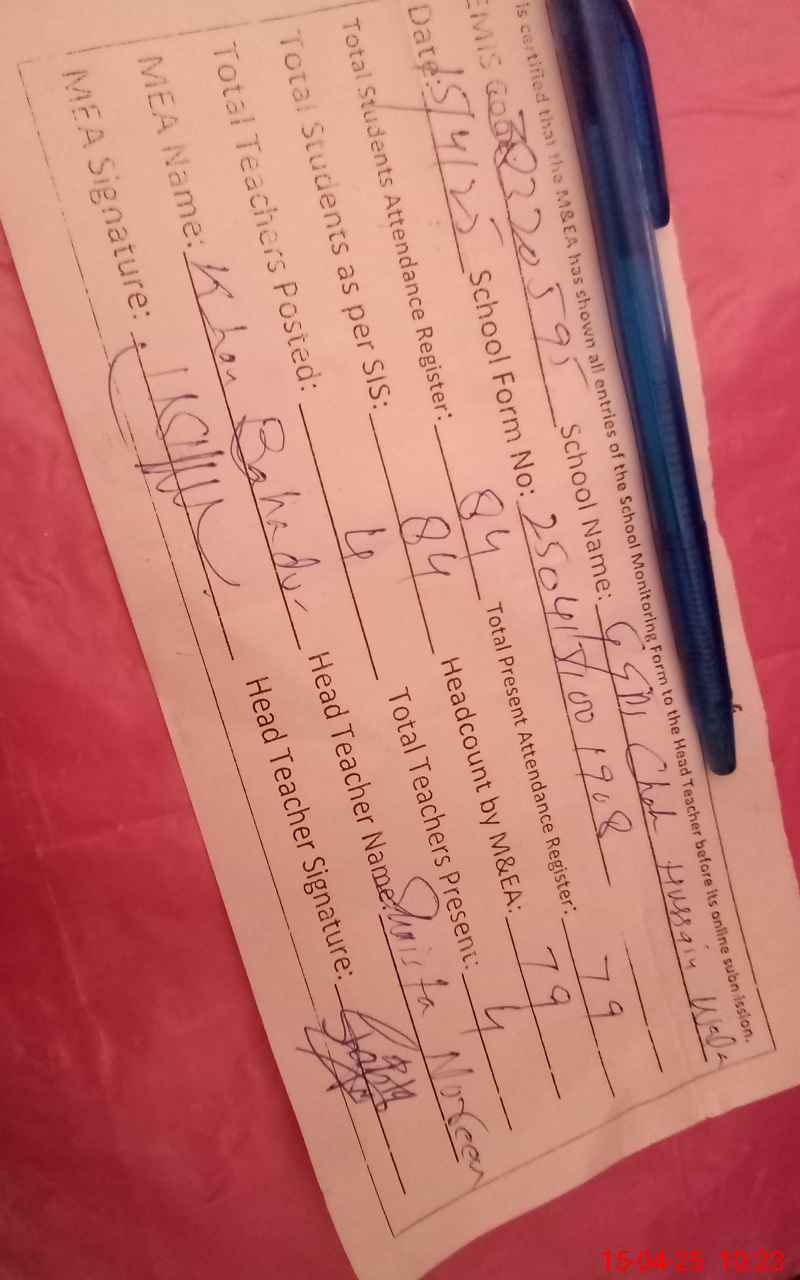 is certified that the M&EA has shown all entries of the School Monitoring Form to the Head Teacher before its online submission.
EMIS Code 38220595 School Name: GGPS Chah Hussain Wala
Date: 15/4/25 School Form No: 2504151001908
Total Students Attendance Register: 84 Total Present Attendance Register: 79
Total Students as per SIS: 84 Headcount by M&EA: 79
Total Teachers Posted: 4 Total Teachers Present: 4
MEA Name: Khan Bahadur Head Teacher Name: Shaista Noreen
MEA Signature: Head Teacher Signature:
15-04-25 10:23